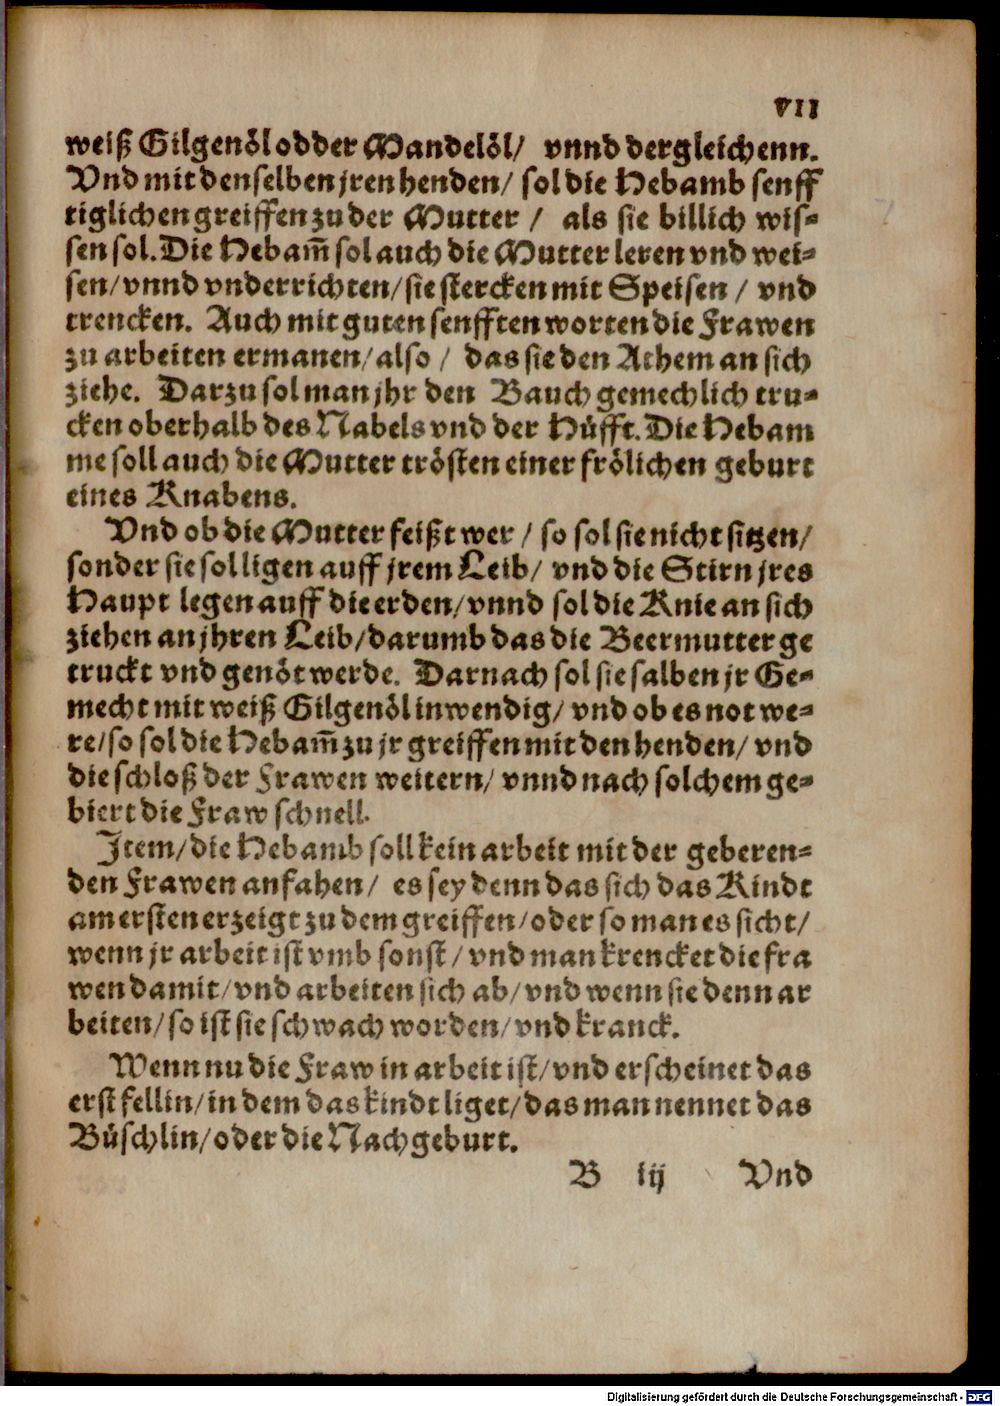 VII
weiß Gilgenöl odder Mandelöl/ vnnd dergleichenn.
Vnd mit denselben jren henden/ sol die Hebamb senff
tiglichen greiffen zu der Mutter / als sie billich wis-
sen sol. Die Hebam̃ sol auch die Mutter leren vnd wei-
sen/ vnnd vnderrichten/ sie stercken mit Speisen / vnd
trencken. Auch mit guten senfften worten die Frawen
zu arbeiten ermanen/ also / das sie den Athem an sich
ziehe. Darzu sol man jhr den Bauch gemechlich tru-
cken oberhalb des Nabels vnd der Hüfft. Die Hebam
me soll auch die Mutter trösten einer frölichen geburt
eines Knabens.
Vnd ob die Mutter feißt wer / so sol sie nicht sitzen/
sonder sie sol ligen auff jrem Leib/ vnd die Stirn jres
Haupt legen auff die erden/ vnnd sol die Knie an sich
ziehen an jhren Leib/ darumb das die Beermutter ge
truckt vnd genöt werde. Darnach sol sie salben jr Ge-
mecht mit weiß Gilgenöl inwendig/ vnd ob es not we-
re/ so sol die Hebam̃ zu jr greiffen mit den henden/ vnd
die schloß der Frawen weitern/ vnnd nach solchem ge-
biert die Fraw schnell.
Item/ die Hebamb soll kein arbeit mit der geberen-
den Frawen anfahen/ es sey denn das sich das Kindt
am ersten erzeigt zu dem greiffen/ oder so man es sicht/
wenn jr arbeit ist vmb sonst / vnd man krencket die fra
wen damit/ vnd arbeiten sich ab/ vnd wenn sie denn ar
beiten/ so ist sie schwach worden/ vnd kranck.
Wenn nu die Fraw in arbeit ist/ vnd erscheinet das
erst fellin/ in dem das kindt liget/ das man nennet das
Büschlin/ oder die Nachgeburt.
B iij Vnd
Digitalisierung gefördert durch die Deutsche Forschungsgemeinschaft - DFG